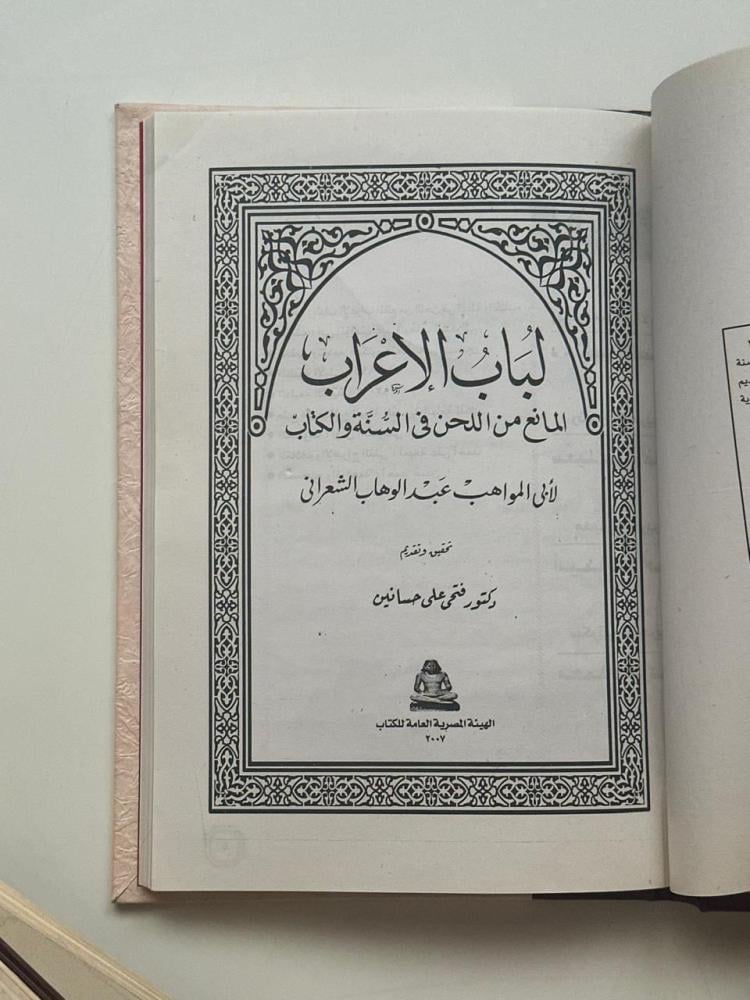 لُبَابُ الإِعْرَاب
المانع من اللحن فى السُنَّة والكتاب
لأبى المواهب عبد الوهاب الشعرانى
تحقيق وتقديم
دكتور فتحى على حسانين
الهيئة المصرية العامة للكتاب
٢٠٠٧